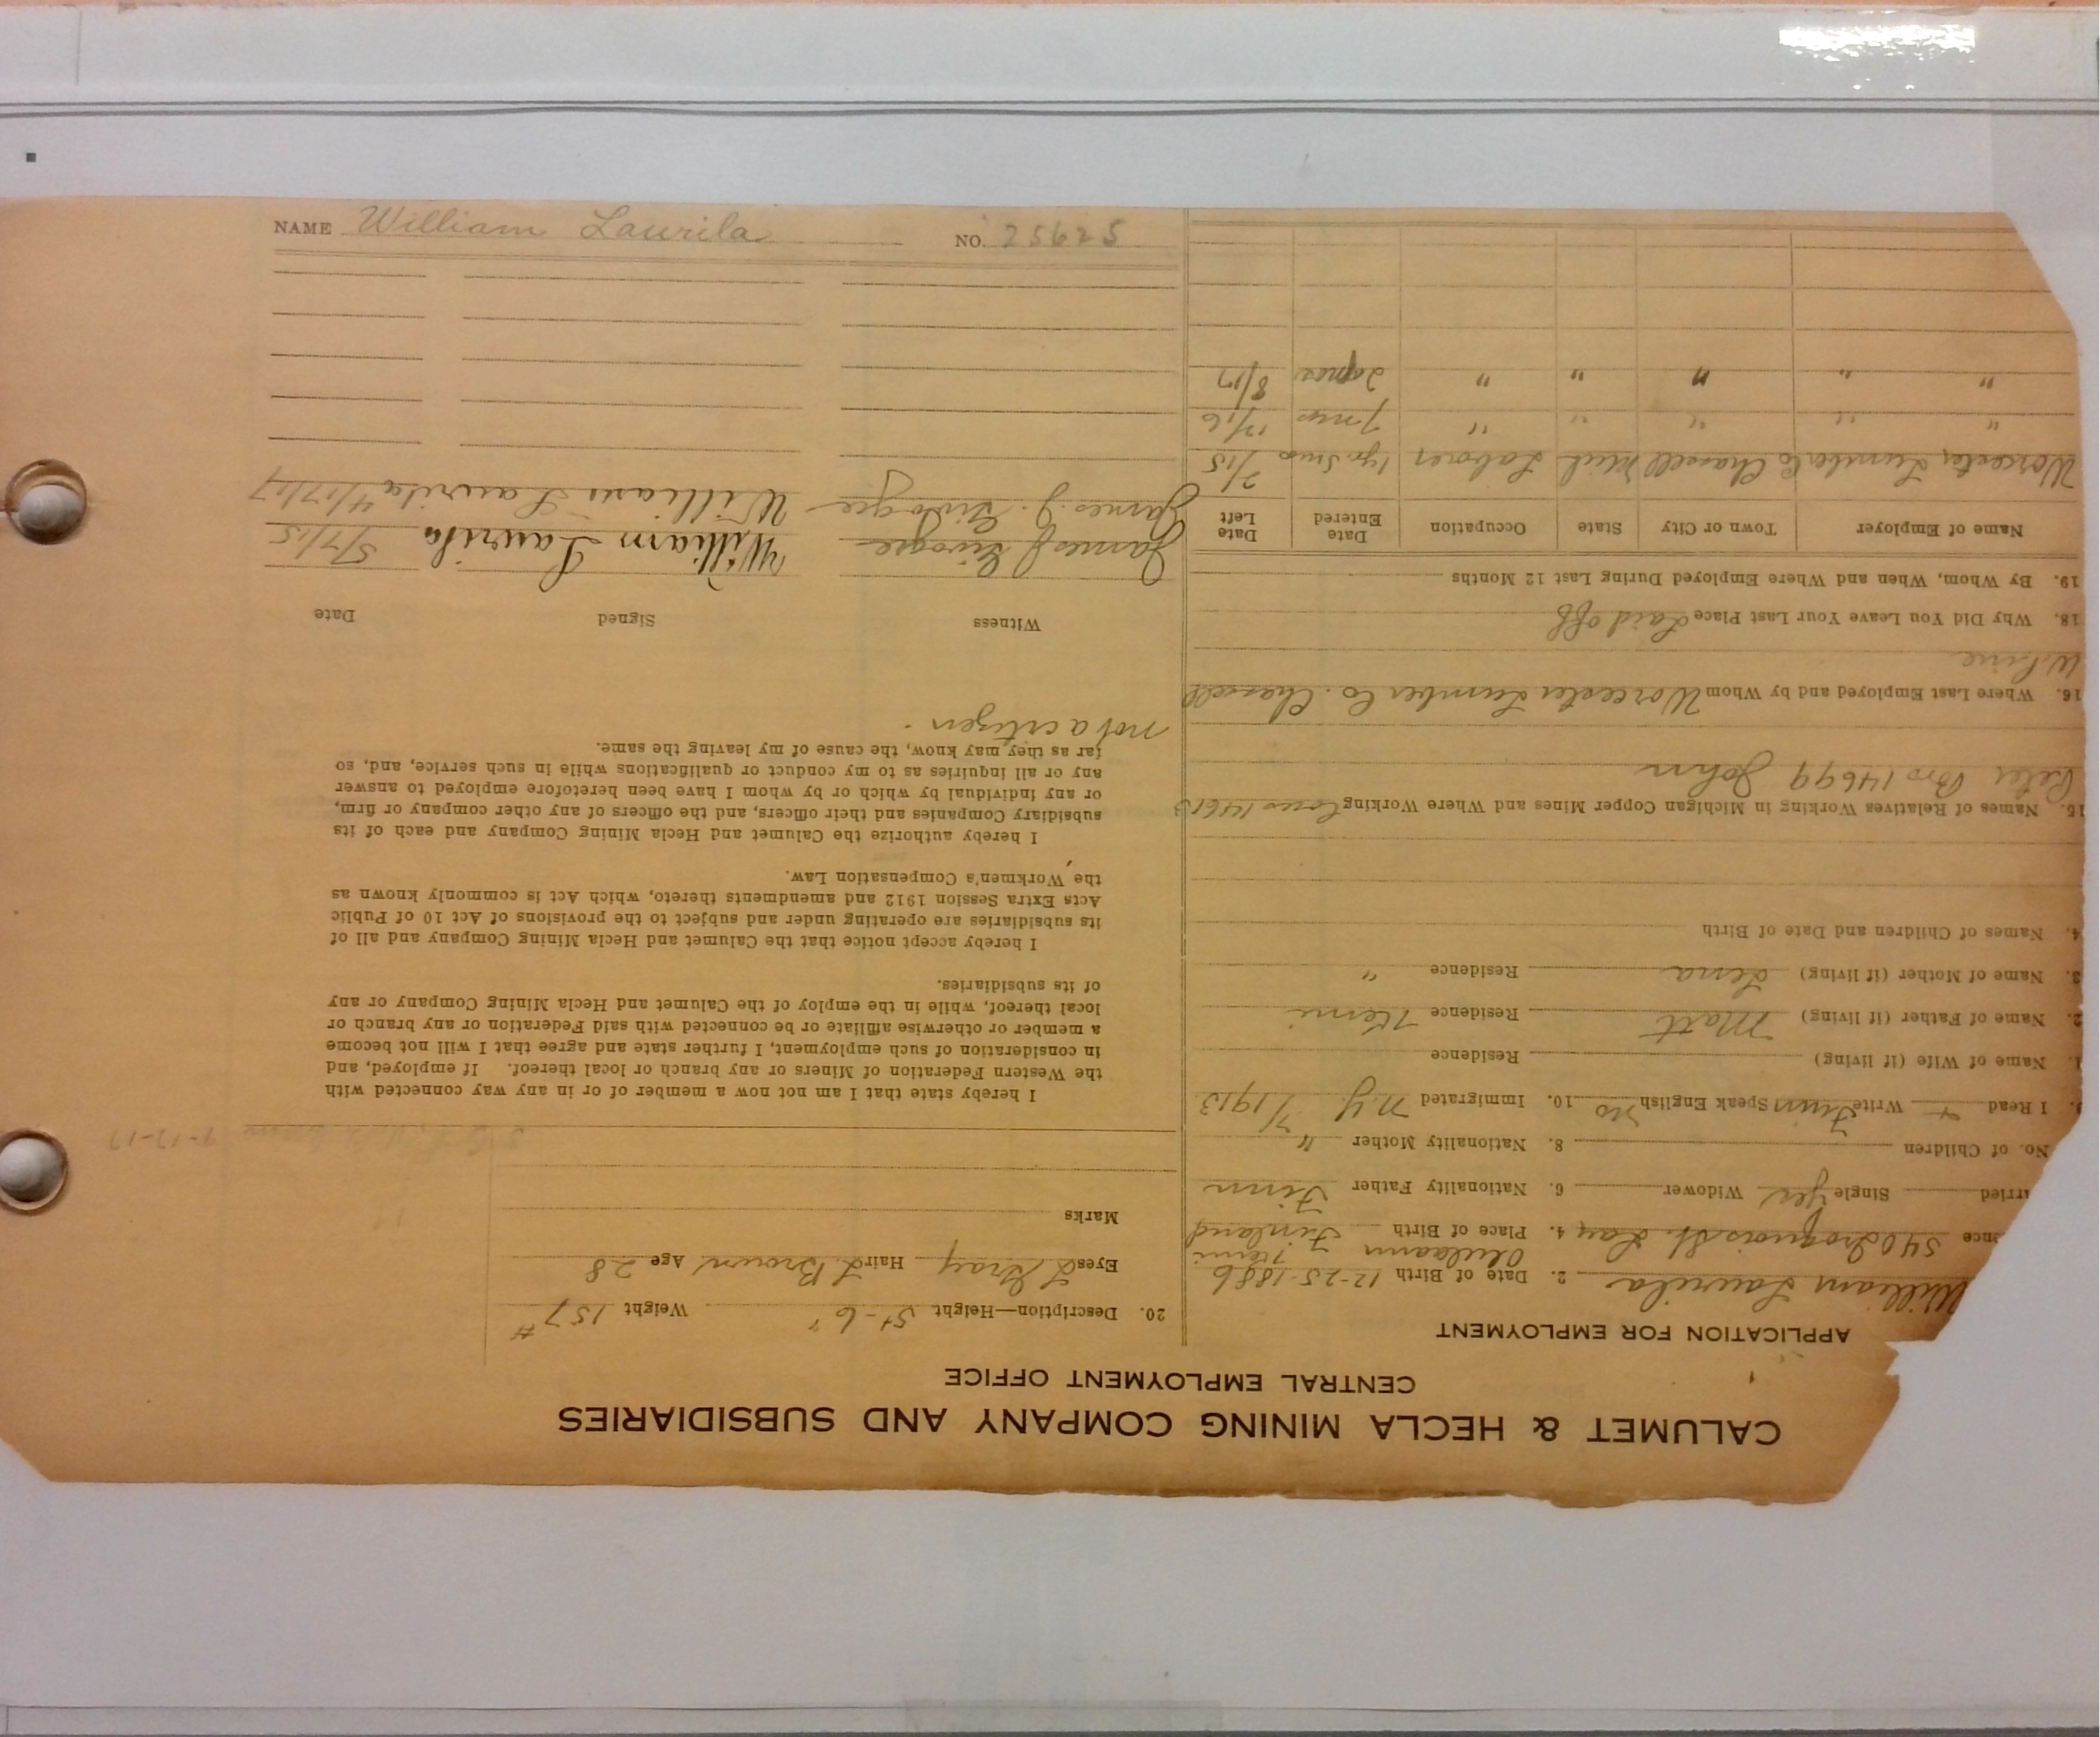 CALUMET & HECLA MINING COMPANY AND SUBSIDIARIES
CENTRAL EMPLOYMENT OFFICE
APPLICATION FOR EMPLOYMENT
William Laurila 2. Date of Birth 12-25-1886
Oulaann Kemi
nce 540 Iroquois St. Lau 4. Place of Birth Finland
rried Single Yes Widower 6. Nationality Father Finn
No. of Children 8. Nationality Mother "
9. I Read + Write Finn Speak English No 10. Immigrated N.Y. 7/1913
1. Name of Wife (if living) Residence
2. Name of Father (if living) Matt Residence Kemi
3. Name of Mother (if living) Lena Residence "
4. Names of Children and Date of Birth
15. Names of Relatives Working in Michigan Copper Mines and Where Working 14613
Peter Bro 14699 John
16. Where Last Employed and by Whom Worcester Lumber Co. Chassell
18. Why Did You Leave Your Last Place Laid off
19. By Whom, When and Where Employed During Last 12 Months
Name of Employer Town or City State Occupation Date Entered Date Left
Worcester Lumber Co Chassell Mich Laborer 1 yr. 5 mos 7/15
" " " " " 7 mos 12/16
" " " " " 8/17
20. Description—Height 5'-6" Weight 157#
Eyes L Gray Hair L Brown Age 28
Marks
9-17-17
I hereby state that I am not now a member of or in any way connected with
the Western Federation of Miners or any branch or local thereof. If employed, and
in consideration of such employment, I further state and agree that I will not become
a member or otherwise affiliate or be connected with said Federation or any branch or
local thereof, while in the employ of the Calumet and Hecla Mining Company or any
of its subsidiaries.
I hereby accept notice that the Calumet and Hecla Mining Company and all of
its subsidiaries are operating under and subject to the provisions of Act 10 of Public
Acts Extra Session 1912 and amendments thereto, which Act is commonly known as
the Workmen's Compensation Law.
I hereby authorize the Calumet and Hecla Mining Company and each of its
subsidiary Companies and their officers, and the officers of any other company or firm,
or any individual by which or by whom I have been heretofore employed to answer
any or all inquiries as to my conduct or qualifications while in such service, and, so
far as they may know, the cause of my leaving the same.
not a citizen.
Witness Signed Date
James J. William Laurila 5/7/15
James J. William Laurila
NAME William Laurila NO. 25625